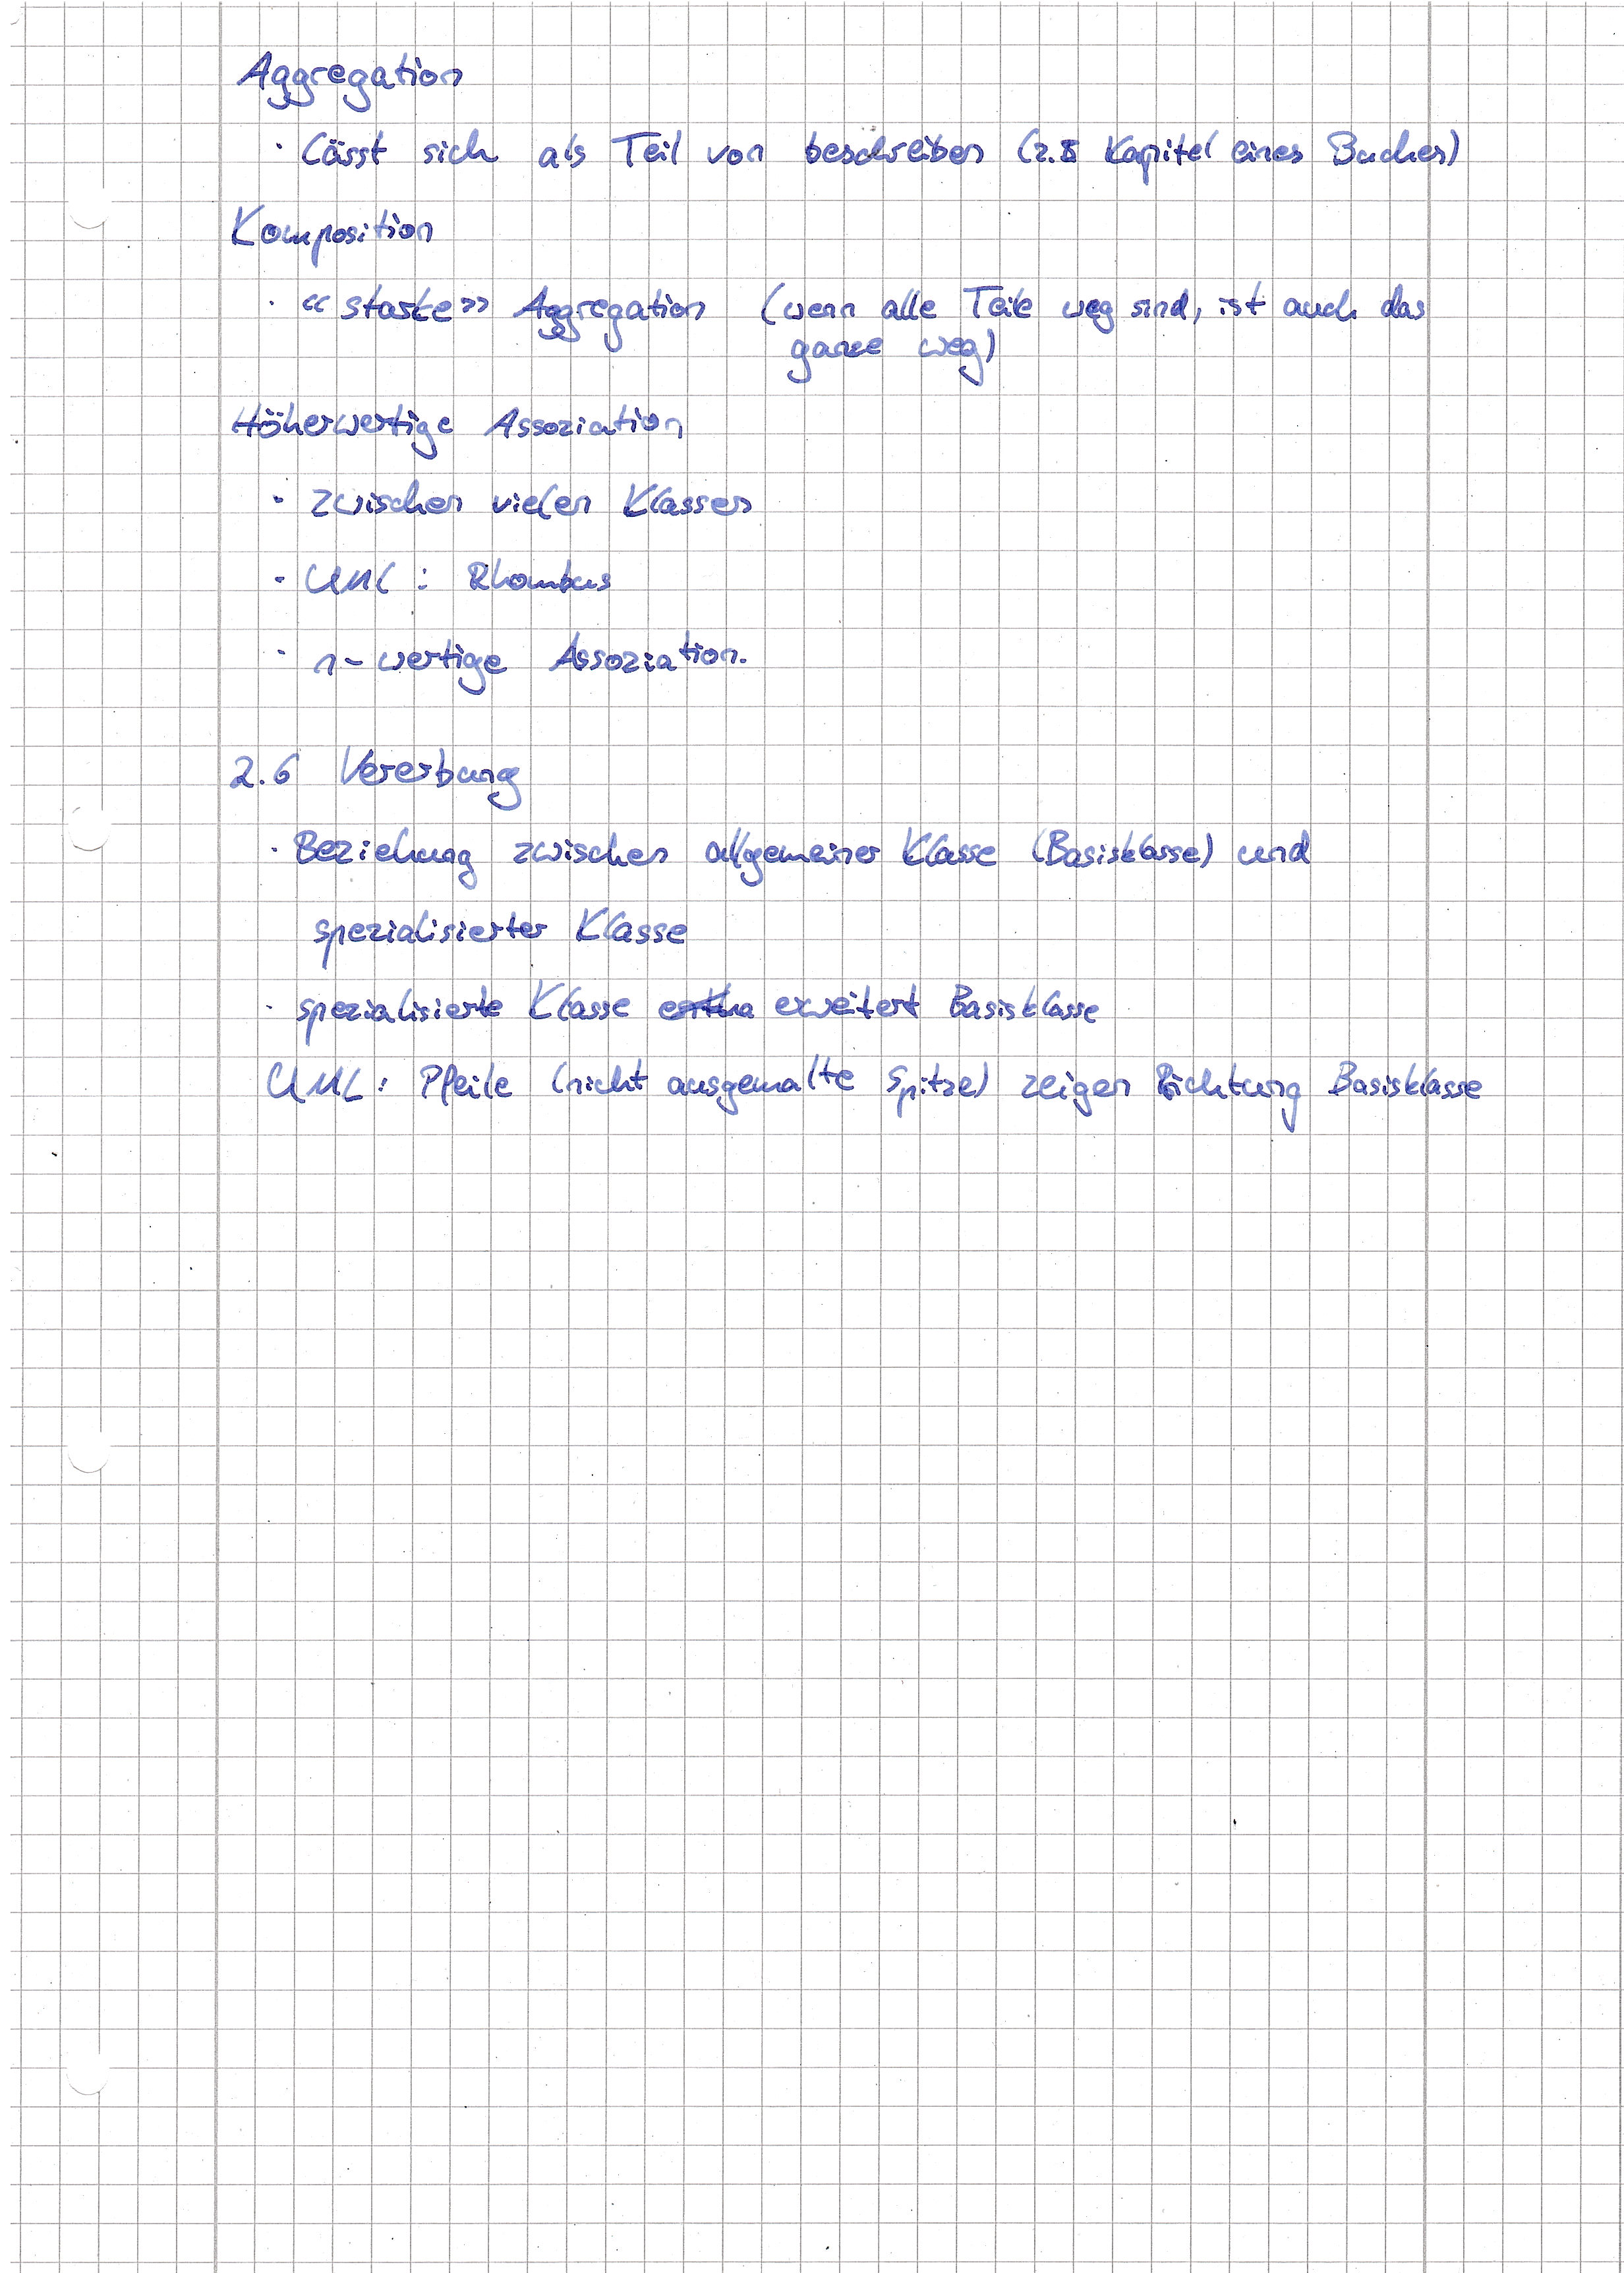 Aggregation
· Lässt sich als Teil von beschreiben (z.B Kapitel eines Buches)
Komposition
· «starke» Aggregation (wenn alle Teile weg sind, ist auch das
ganze weg)
Höherwertige Assoziation
· zwischen vielen Klassen
· UML: Rhombus
· n-wertige Assoziation.
2.6 Vererbung
· Beziehung zwischen allgemeiner Klasse (Basisklasse) und
spezialisierter Klasse
· spezialisierte Klasse erweitert Basisklasse
UML: Pfeile (nicht ausgemalte Spitze) zeigen Richtung Basisklasse